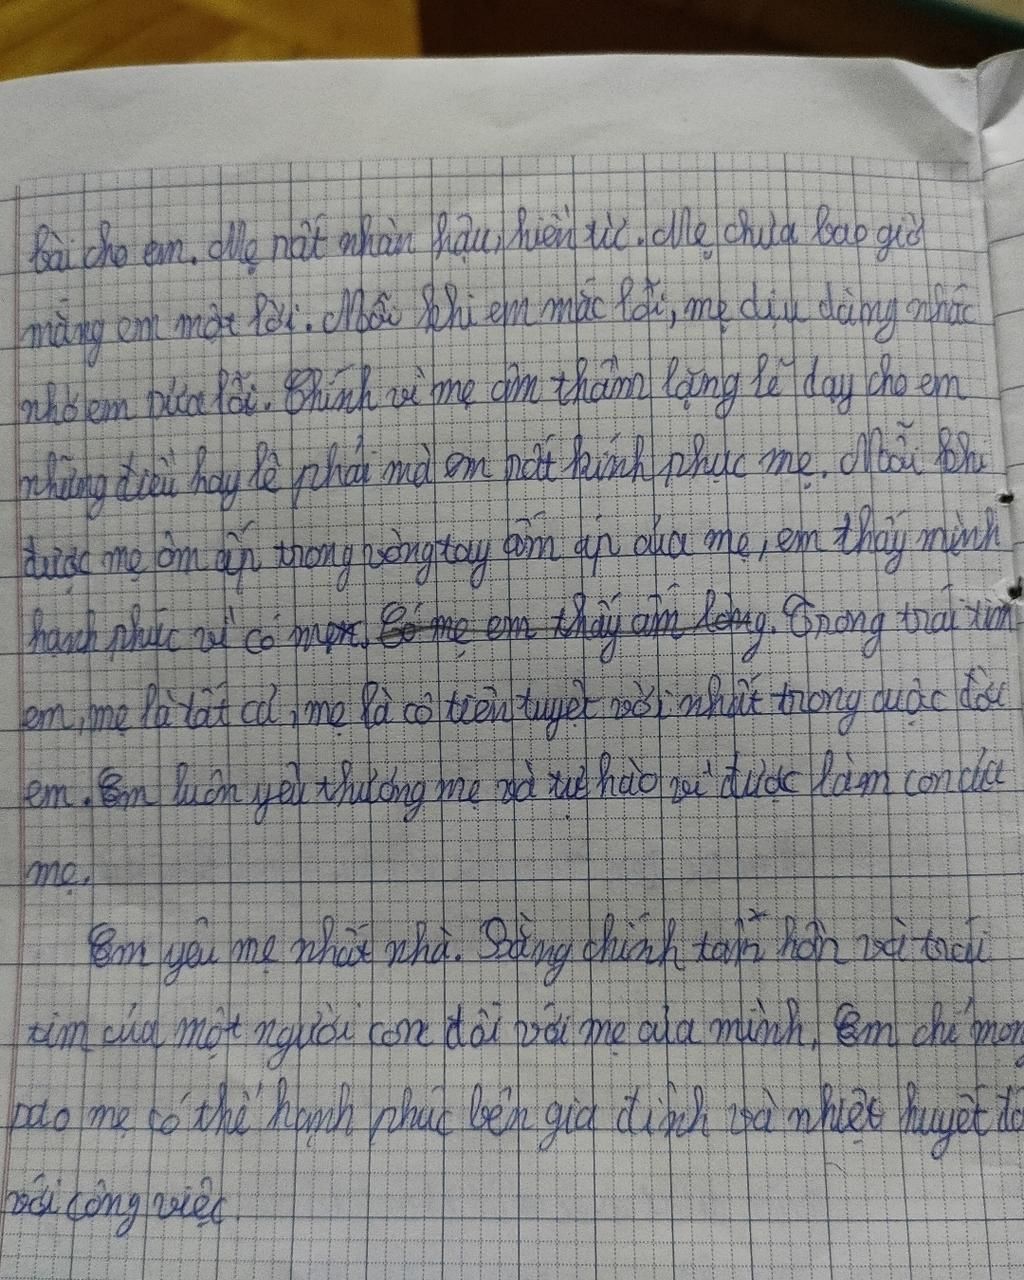 bài cho em. Mẹ rất nhân hậu, hiền từ. Mẹ chưa bao giờ
mắng em một lời. Mỗi khi em mắc lỗi, mẹ dịu dàng nhắc
nhở em sửa lỗi. Chính vì mẹ âm thầm lặng lẽ dạy cho em
những điều hay lẽ phải mà em rất kính phục mẹ. Mỗi khi
được mẹ ôm ấp trong vòng tay ấm áp của mẹ, em thấy mình
hạnh phúc vì có mẹ. Có mẹ em thấy ấm lòng. Trong trái tim
em, mẹ là tất cả, mẹ là cô tiên tuyệt vời nhất trong cuộc đời
em. Em luôn yêu thương mẹ và tự hào vì được làm con của
mẹ.
Em yêu mẹ nhất nhà. Bằng chính tâm hồn và trái
tim của một người con đối với mẹ của mình, Em chỉ mong
sao mẹ có thể hạnh phúc bên gia đình và nhiệt huyết đố
với công việc.